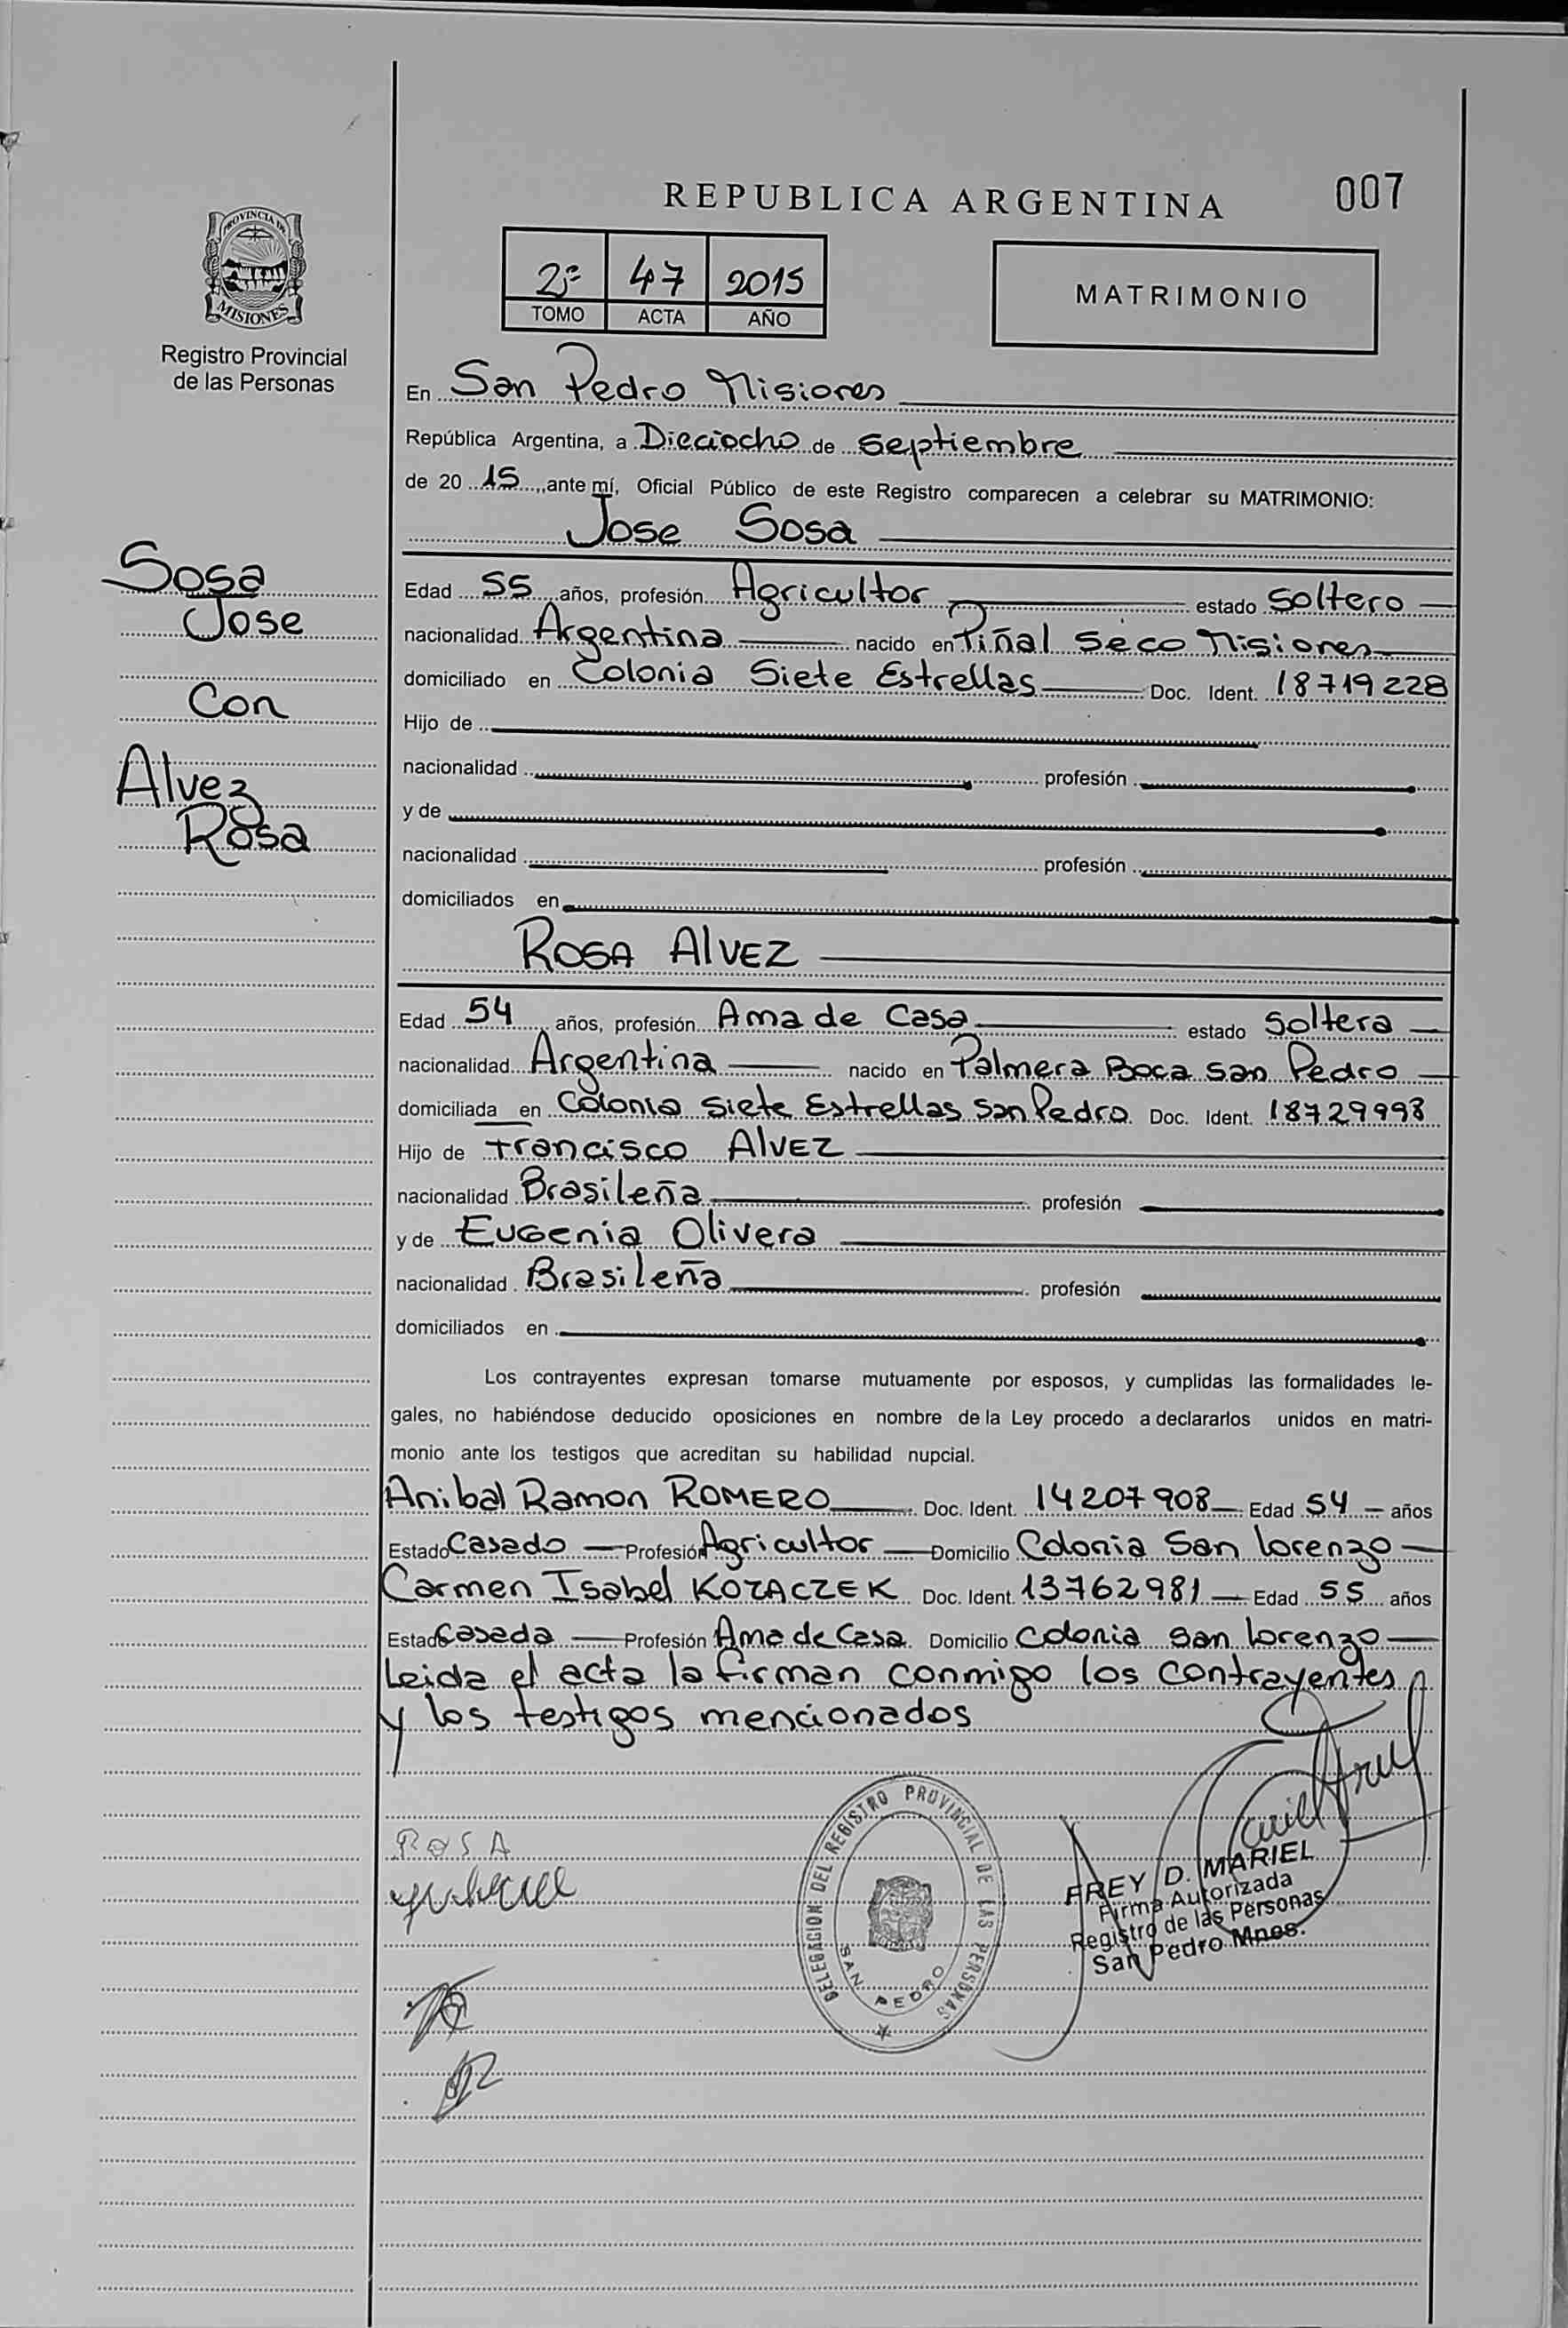 REPUBLICA ARGENTINA
007
PROVINCIA DE
MISIONES
Registro Provincial
de las Personas
2º 47 2015
TOMO ACTA AÑO
MATRIMONIO
En San Pedro Misiones
República Argentina, a Dieciocho de Septiembre
de 2015, ante mí, Oficial Público de este Registro comparecen a celebrar su MATRIMONIO:
Jose Sosa
Sosa
Jose
Con
Alvez
Rosa
Edad 55 años, profesión Agricultor estado Soltero
nacionalidad Argentina nacido en Piñal Seco Misiones
domiciliado en Colonia Siete Estrellas Doc. Ident. 18719228
Hijo de
nacionalidad profesión
y de
nacionalidad profesión
domiciliados en
ROSA AlVEZ
Edad 54 años, profesión Ama de Casa estado Soltera
nacionalidad Argentina nacido en Palmera Boca San Pedro
domiciliada en Colonia Siete Estrellas San Pedro Doc. Ident. 18729998
Hijo de Francisco AlVEZ
nacionalidad Brasileña profesión
y de Eugenia Olivera
nacionalidad Brasileña profesión
domiciliados en
Los contrayentes expresan tomarse mutuamente por esposos, y cumplidas las formalidades le-
gales, no habiéndose deducido oposiciones en nombre de la Ley procedo a declararlos unidos en matri-
monio ante los testigos que acreditan su habilidad nupcial.
Anibal Ramon ROMERO Doc. Ident. 14207908 Edad 54 años
Estado Casado Profesión Agricultor Domicilio Colonia San Lorenzo
Carmen Isabel KOZACZEK Doc. Ident. 13762981 Edad 55 años
Estado Casada Profesión Ama de Casa Domicilio Colonia San Lorenzo
Leida el acta la firman conmigo los contrayentes
y los testigos mencionados
ROSA
DELEGACION DEL REGISTRO PROVINCIAL DE LAS PERSONAS
SAN PEDRO
FREY D. MARIEL
Firma Autorizada
Registro de las Personas
San Pedro Mnes.